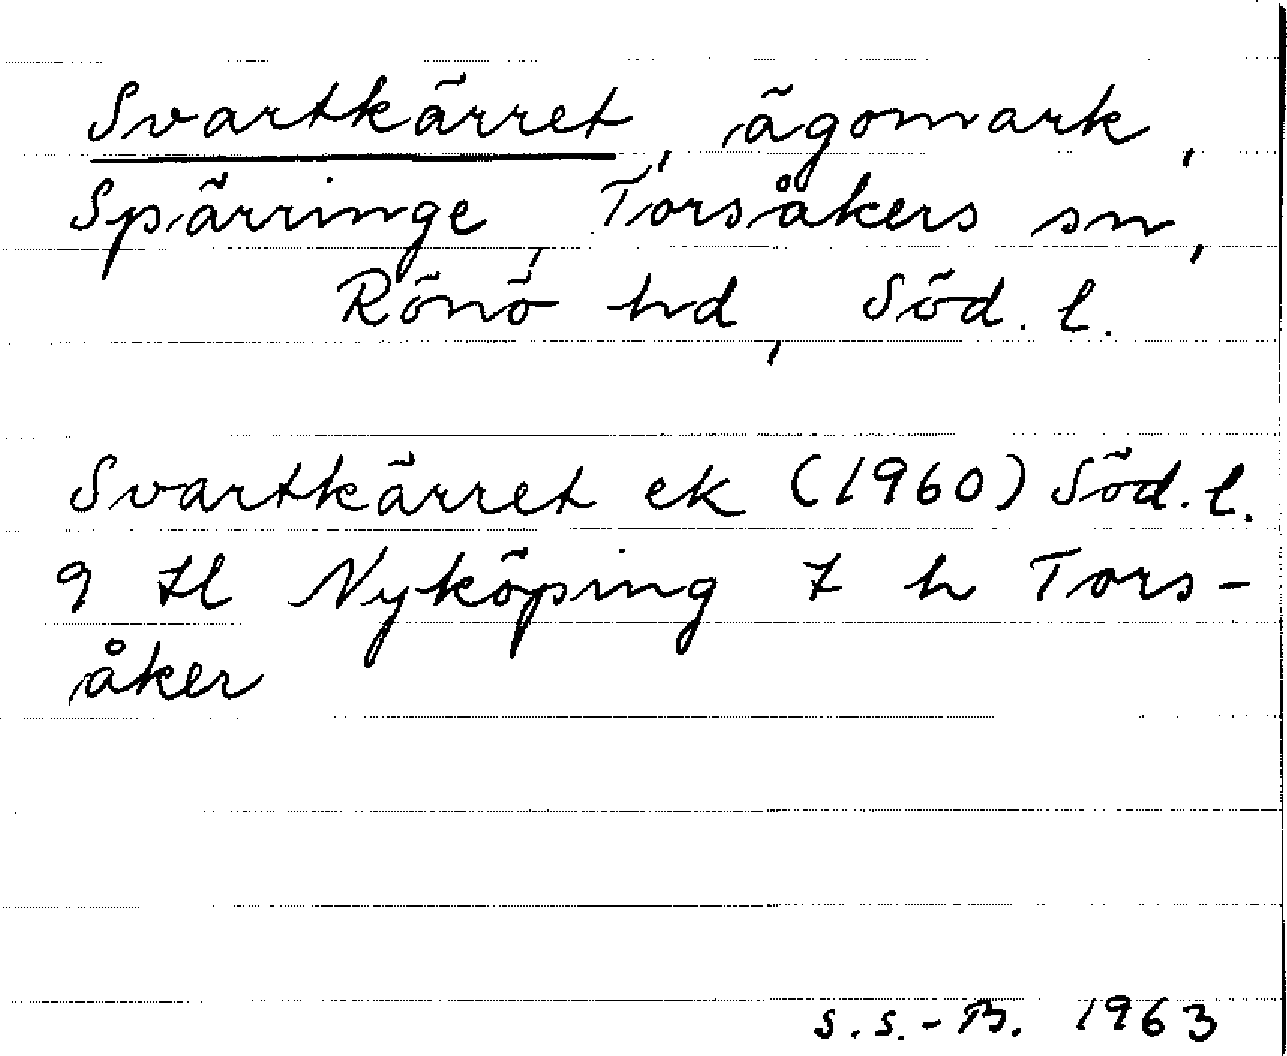 Svartkärret, ägomark,
Spärringe, Torsåkers sn,
Rönö hd, Söd. l.
Svartkärret ek (1960) Söd. l.
9 tl Nyköping 7 h Tors-
åker
S.S.-B. 1963